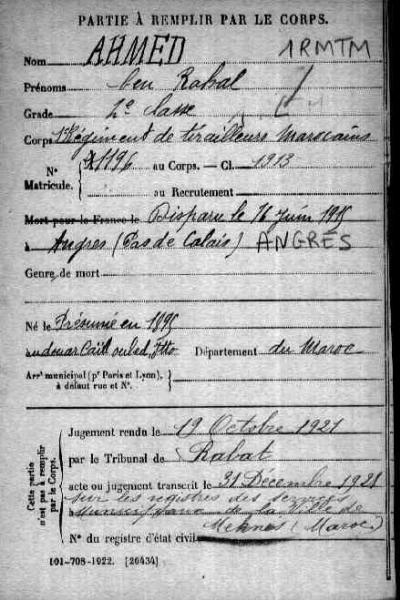 PARTIE À REMPLIR PAR LE CORPS.
Nom AHMED 1RMTM
Prénoms ben Rabal
Grade 2e classe
Corps 1er Régiment de tirailleurs Marocains
N° Matricule. { 1196 au Corps. — Cl. 1913
au Recrutement
Mort pour la France le Disparu le 16 Juin 1915
à Angres (Pas de Calais) ANGRES
Genre de mort
Né le Présumé en 1895
au douar Département du Maroc
Arrt municipal (pr Paris et Lyon), à défaut rue et N°. }
Cette partie n'est pas à remplir par le Corps.
Jugement rendu le 19 Octobre 1921
par le Tribunal de Rabat
acte ou jugement transcrit le 31 Décembre 1921
sur les registres des services
à municipaux de la Ville de
Meknes (Maroc)
N° du registre d'état civil
101-708-1922. [26434]